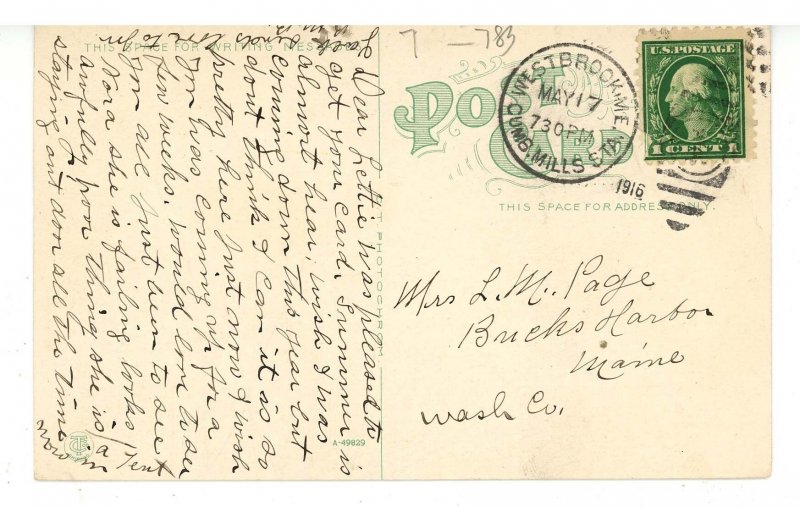 THIS SPACE FOR WRITING MES
Dear Lettie was pleased to
get your card. Summer is
almost hear, wish I was
coming down this year but
dont think I can it is so
pretty here just now I wish
you was coming up for a
few weeks. would love to see
you all Just been to see
Nora she is failing looks
awfully poor thing she is
staying out don all the time
now in
a Tent
sends love to you
PHOTOCHROM
A-49829
7 - 783
Post
Card
WESTBROOK, ME.
MAY 17
7 30 PM
CUMB. MILLS STA.
1916
U.S. POSTAGE
1 CENT 1
THIS SPACE FOR ADDRESS ONLY.
Mrs L. M. Page
Bucks Harbor
Maine
Wash Co.